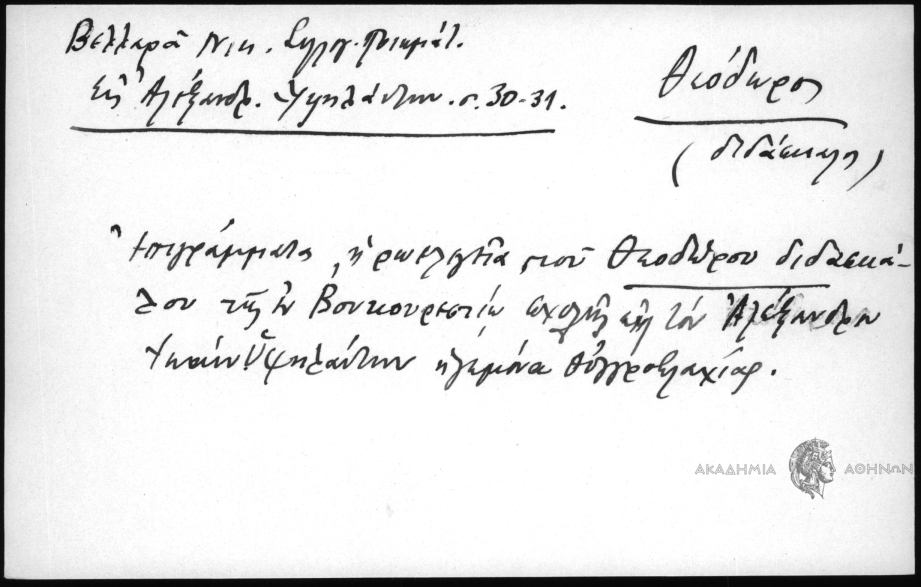 Βελλαρᾶ Νικ. Συλλογ. Ποιημάτ.
Εἰς Ἀλέξανδρ. Ὑψηλάντην. σ. 30-31.
Θεόδωρος
(διδάσκαλος)
Ἐπιγράμματα, ἡρωελεγεῖα τοῦ Θεοδώρου διδασκά-
λου τῆς ἐν Βουκουρεστίῳ σχολῆς εἰς τὸν Ἀλέξανδρον
Ὑψηλάντην ἡγεμόνα Οὑγγροβλαχίας.
ΑΚΑΔΗΜΙΑ ΑΘΗΝΩΝ